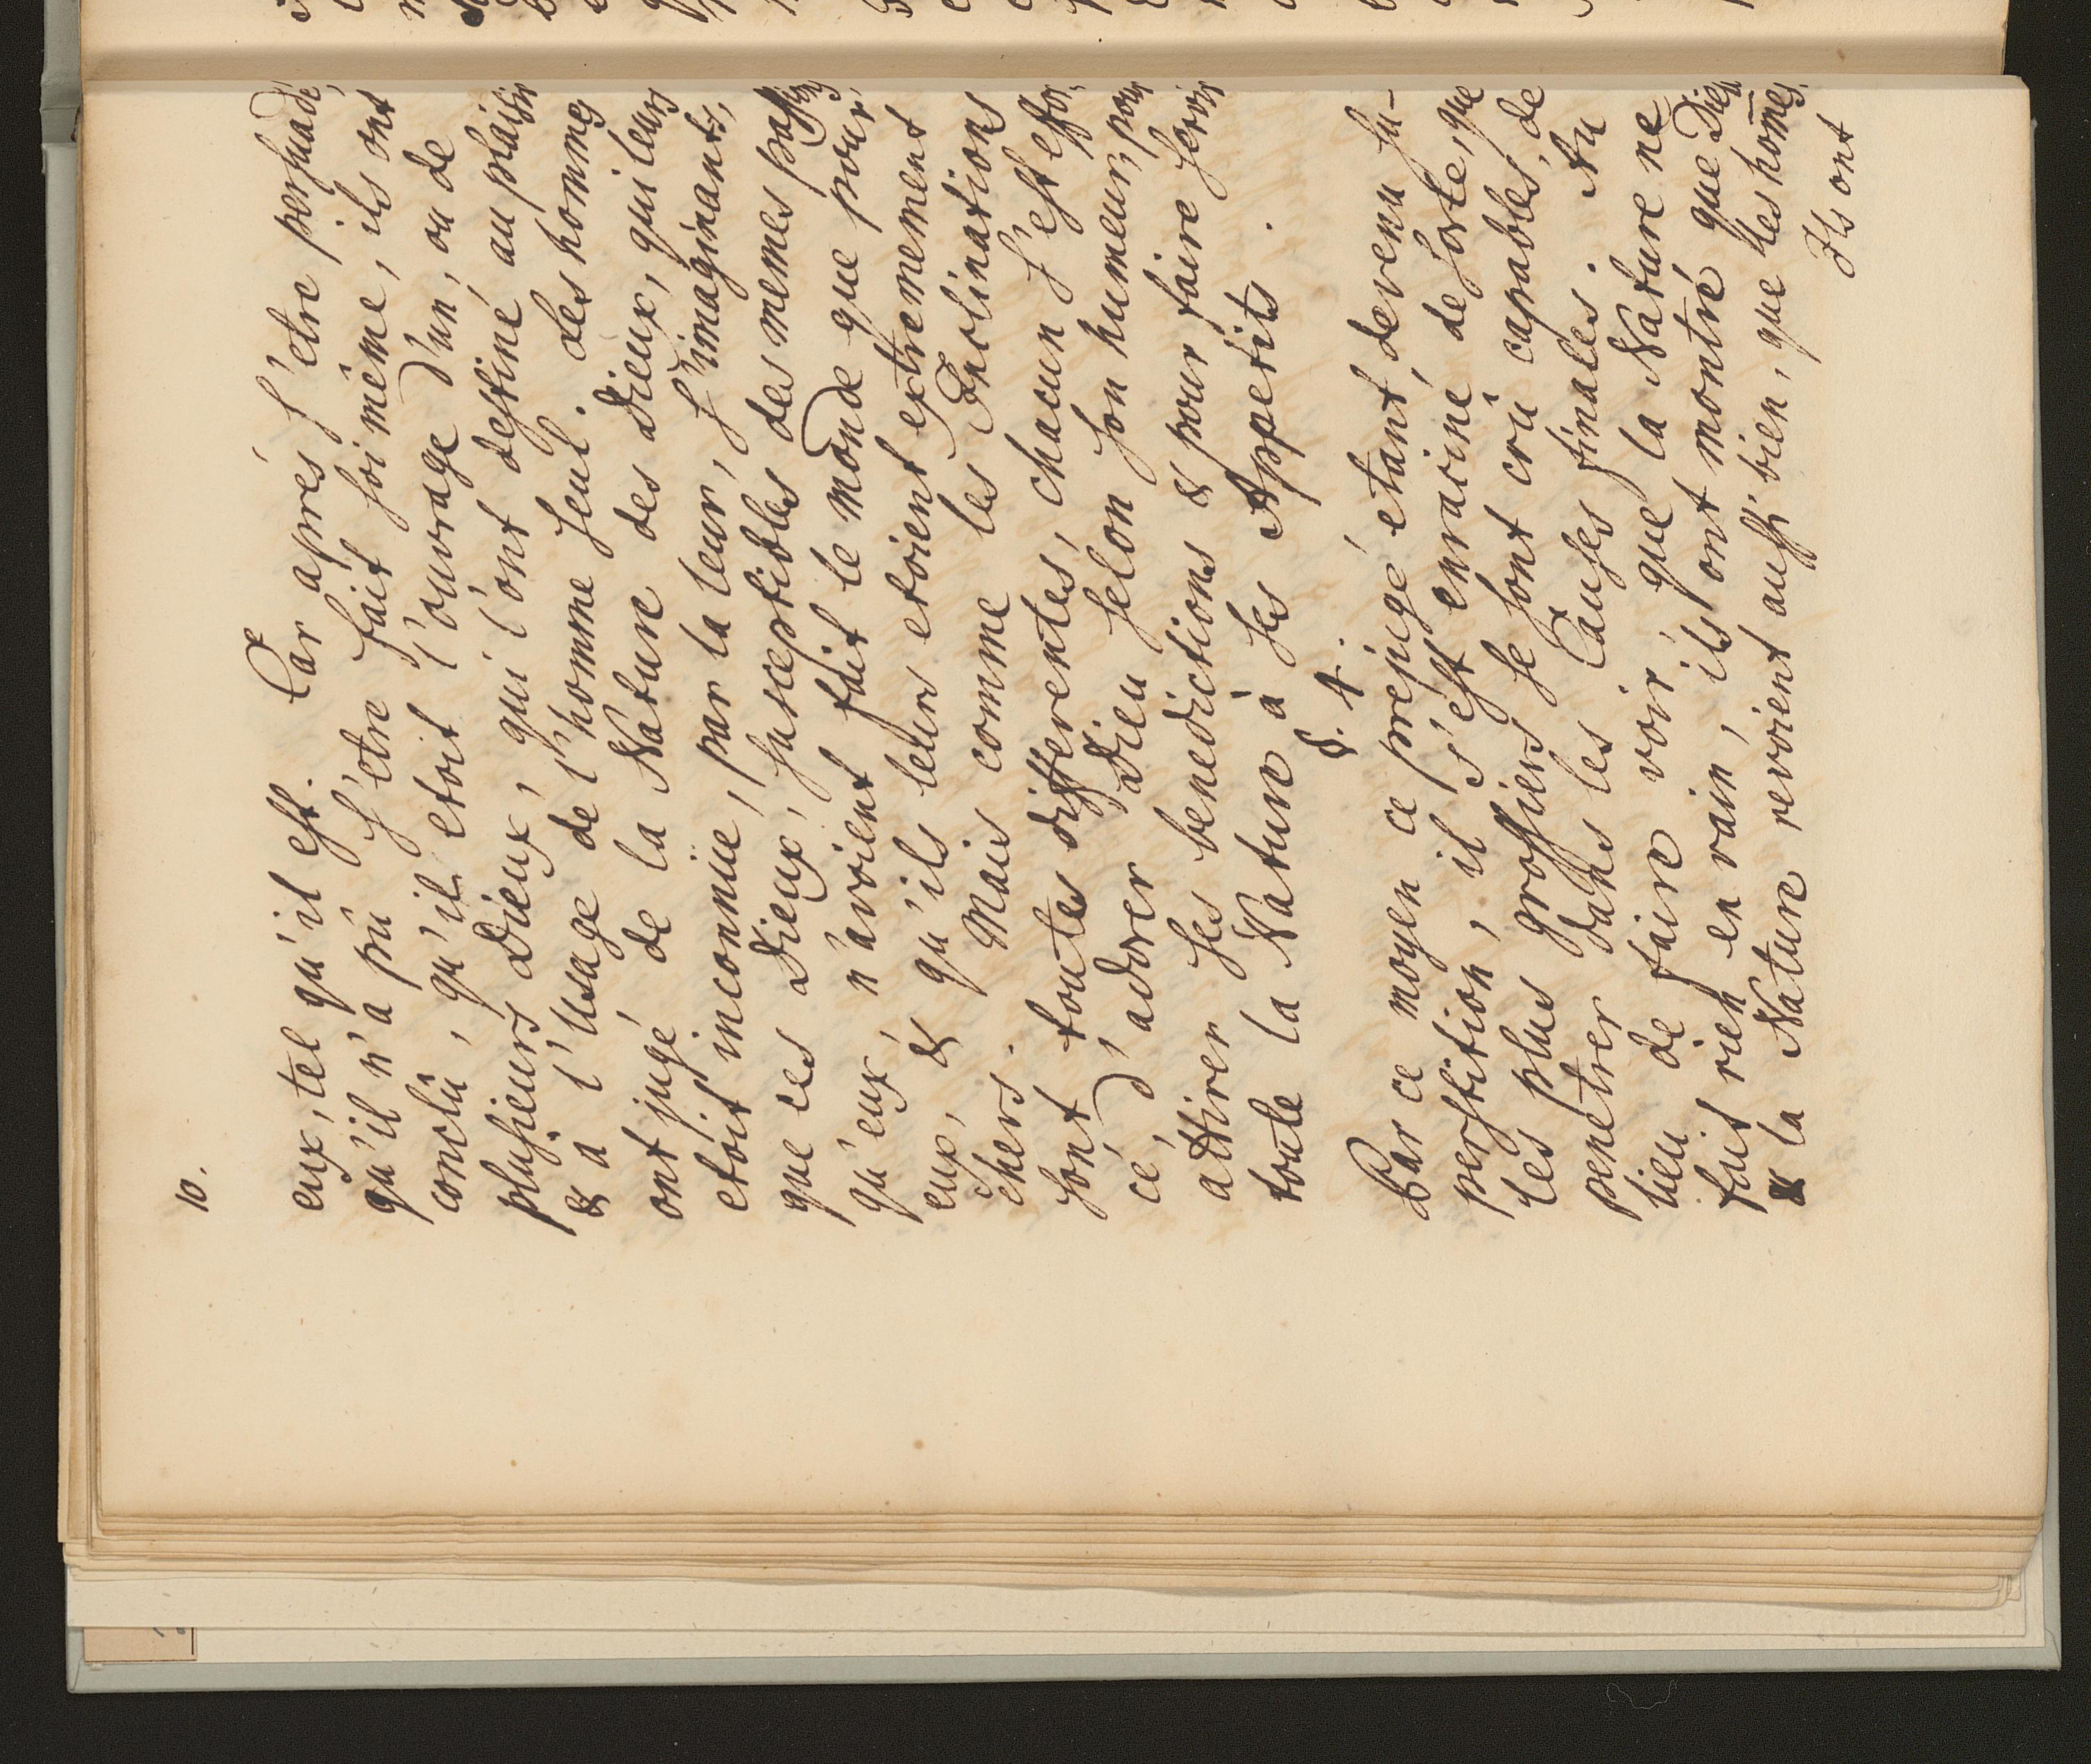 10.
eux, tel qu'il est. Car aprés s'etre persuadé,
qu'il n'a pû s'etre fait soi même, ils ont
conclû, qu'il etoit l'ouvrage d'un, ou de
plusieurs Dieux, qui l'ont destiné au plaisir
& a l'Usage de l'homme seul. Les hommes
ont jugé de la Nature des Dieux, qui leurs
etoit inconnüe, par la leur, s'imaginants,
que ces Dieux, susceptibles des memes passions
qu'eux, n'avoient fait le monde que pour
eux, & qu'ils leurs etoient extremement
chers. Mais comme les Inclinations
sont toutes differentes, chacun s'est effor-
cé, d'adorer Dieu selon son humeur, pour
attirer ses benedictions & pour faire servir
toute la Nature à ses Appetits.
§. 4.
Par ce moyen ce prejugé etant devenu su-
perstition, il s'est enraciné de sorte, que
les plus grossiers se sont crû capables, de
penetrer dans les Causes finales. Au
lieu de faire voir, que la Nature ne
fait rien en vain, ils ont montré que Dieu
& la Nature revoient auss' bien, que les homes.
Ils ont